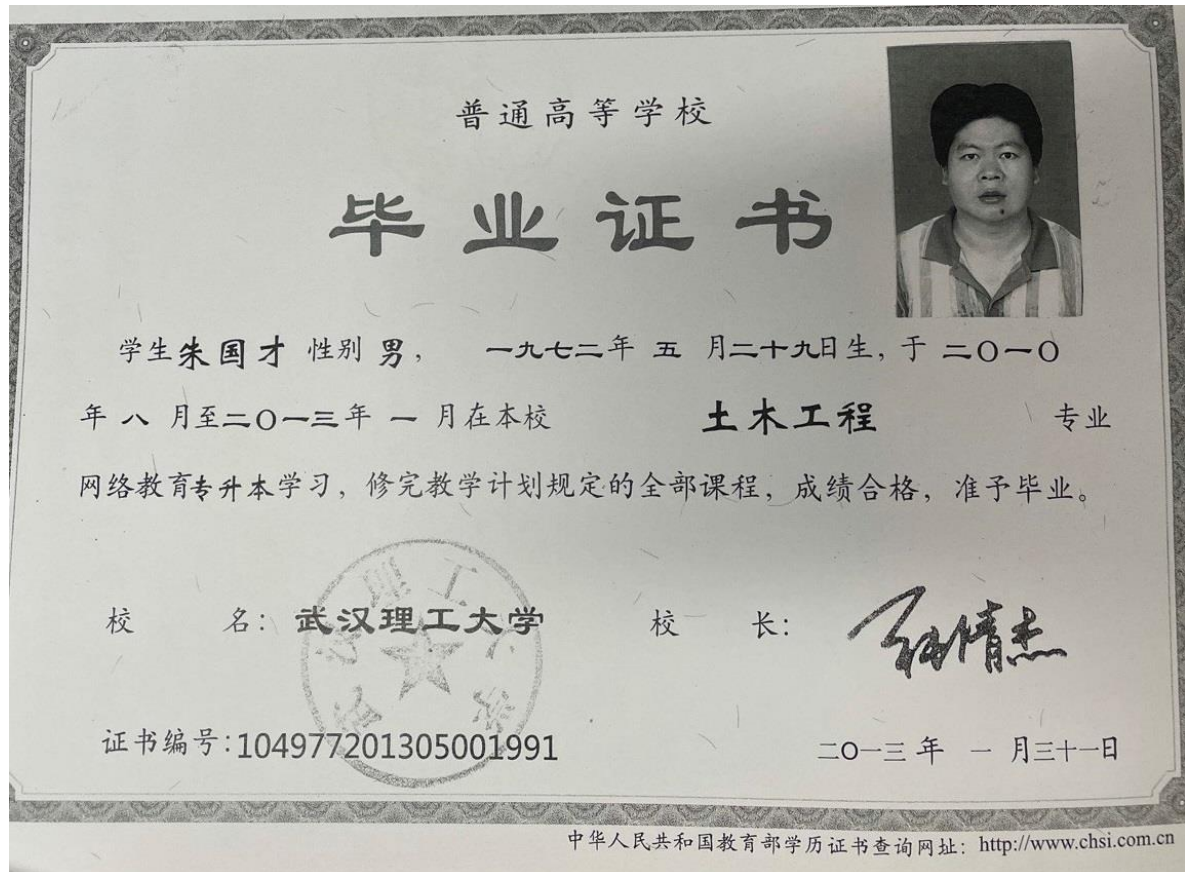 普通高等学校
毕业证书
学生朱国才 性别 男， 一九七二年 五 月二十九日生，于 二〇一〇
年 八 月至二〇一三年 一 月在本校 土木工程 专业
网络教育专升本学习，修完教学计划规定的全部课程，成绩合格，准予毕业。
校 名：武汉理工大学 校 长：
证书编号：104977201305001991 二〇一三 年 一 月三十一日
中华人民共和国教育部学历证书查询网址：http://www.chsi.com.cn